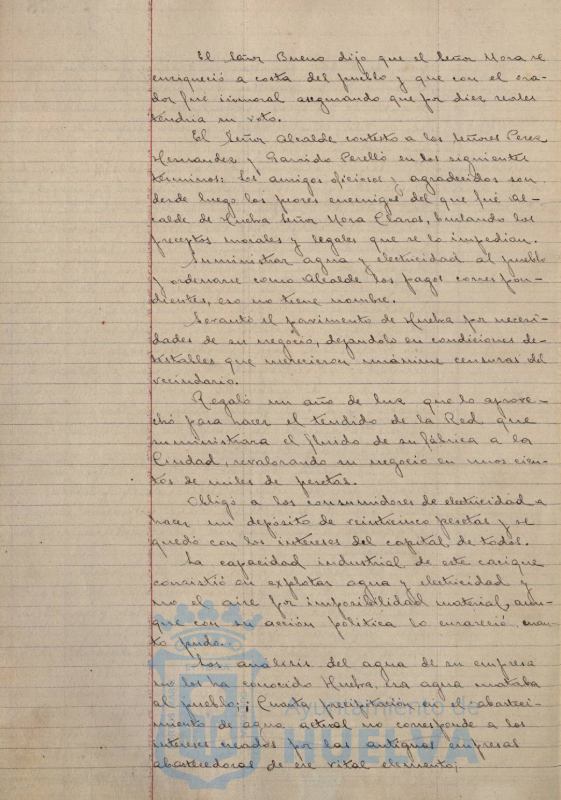 El Señor Bueno dijo que el Señor Mora se
enriqueció a costa del pueblo y que con el ora-
dor fué inmoral asegurando que por diez reales
tendria su voto.
El Señor Alcalde contesto a los Señores Perez
Hernandez y Garrido Perelló en los siguientes
terminos: Los amigos oficiosos y agradecidos son
desde luego los peores enemigos del que fué Al-
calde de Huelva Señor Mora Claros, burlando los
preceptos morales y legales que se lo impedian.
Suministrar agua y electricidad al pueblo
y ordenarse como Alcalde los pagos correspon-
dientes, eso no tiene nombre.
Levantó el pavimento de Huelva por necesi-
dades de su negocio, dejandolo en condiciones de-
testables que merecieron unánime censuras del
vecindario.
Regaló un año de luz que lo aprove-
chó para hacer el tendido de la Red que
suministrara el fluido de su fábrica a la
Ciudad, revalorando su negocio en unos cien-
tos de miles de pesetas.
Obligó a los consumidores de electricidad a
hacer un depósito de veinticinco pesetas y se
quedó con los intereses del capital de todos.
La capacidad industrial de este cacique
consistió en explotar agua y electricidad y
no el aire por imposibilidad material, aun-
que con su acción politica lo enrareció cuan-
to pudo.
Los análisis del agua de su empresa
no los ha conocido Huelva, esa agua mataba
al pueblo; ¡Cuanta precipitación en el abasteci-
miento de agua actual no corresponde a los
intereses creados por las antiguas empresas
abastecedoras de ese vital elemento;
Ayuntamiento de
HUELVA